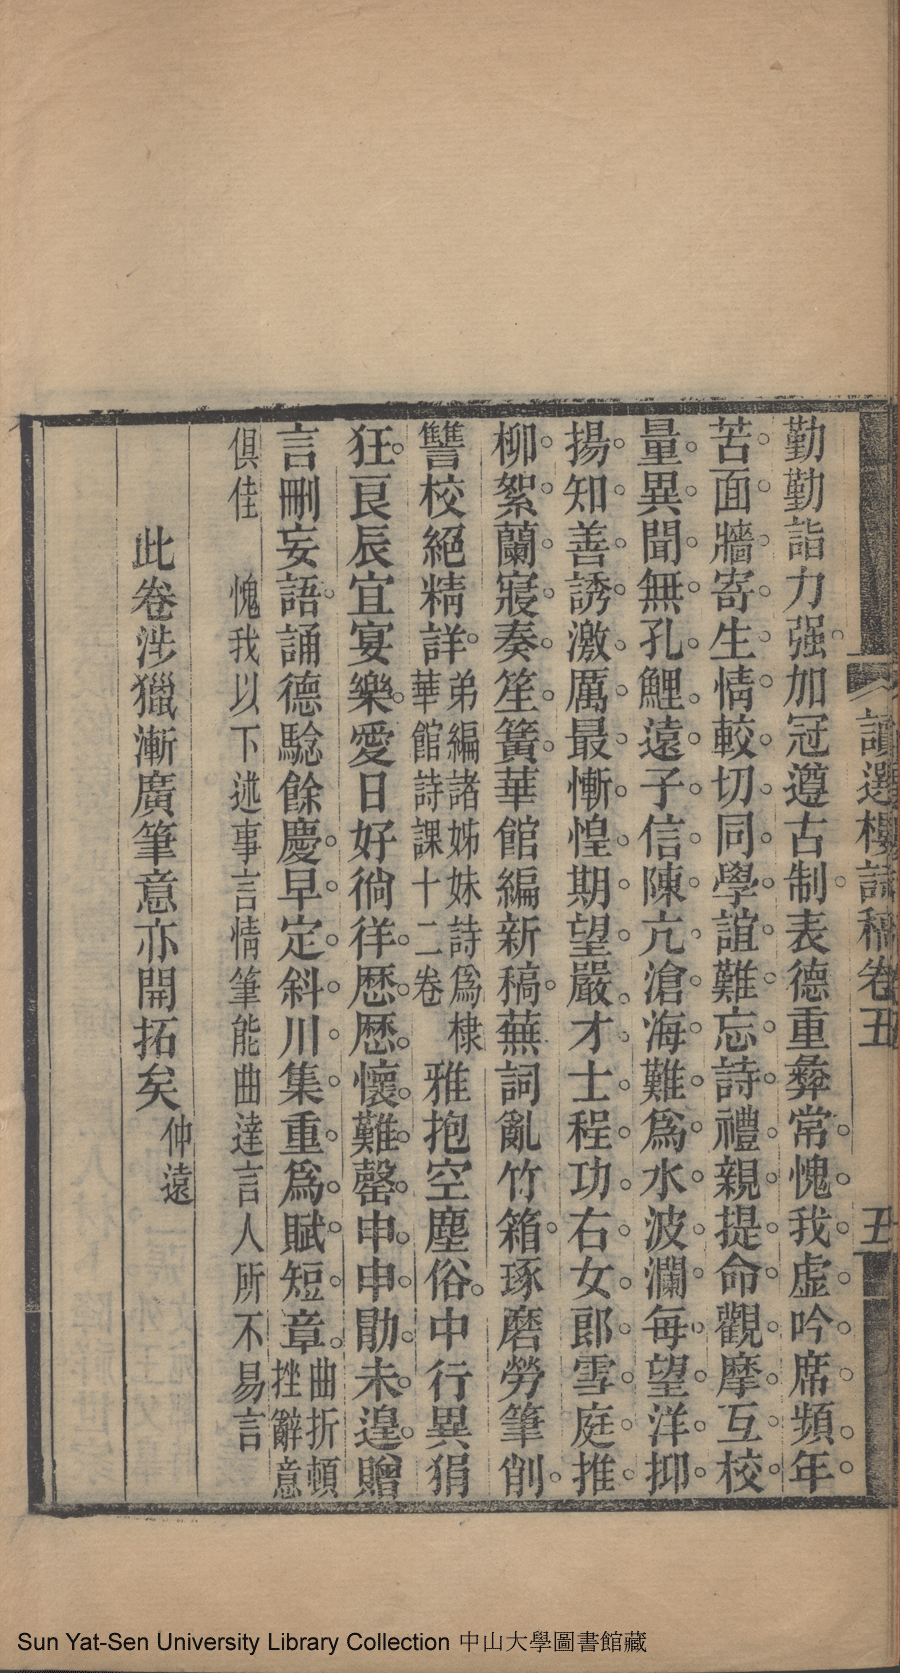 讀選樓詩稿卷丑
丑
勤勤詣力强加冠遵古制表德重彝常愧我虛吟席頻年
苦面牆寄生情較切同學誼難忘詩禮親提命觀摩互校
量異聞無孔鯉遠子信陳亢滄海難爲水波瀾每望洋抑
揚知善誘激厲最慚惶期望嚴才士程功右女郎雪庭推
柳絮蘭寢奏笙簧華館編新稿蕪詞亂竹箱琢磨勞筆削
讐校絕精詳弟編諸姊妹詩爲棣華館詩課十二卷雅抱空塵俗中行異狷
狂良辰宜宴樂愛日好徜徉歷歷懷難罄申申勖未遑贈
言刪妄語誦德騐餘慶早定斜川集重爲賦短章曲折頓挫辭意
俱佳　愧我以下述事言情筆能曲達言人所不易言
此卷涉獵漸廣筆意亦開拓矣仲遠
Sun Yat-Sen University Library Collection 中山大學圖書館藏